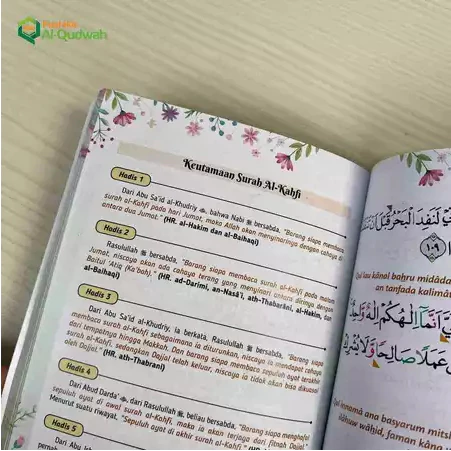 Pustaka
Al-Qudwah
Keutamaan Surah Al-Kahfi
Hadis 1
Dari Abu Sa'id al-Khudriy, bahwa Nabi ﷺ bersabda, "Barang siapa membaca
surah al-Kahfi pada hari Jumat, maka Allah akan menyinarinya dengan cahaya di
antara dua Jumat." (HR. al-Hakim dan al-Baihaqi)
Hadis 2
Rasulullah ﷺ bersabda, "Barang siapa membaca surah al-Kahfi pada malam
Jumat, niscaya akan ada cahaya terang yang menyinari antara dirinya dengan
Baitul 'Atiq (Ka'bah)." (HR. ad-Darimi, an-Nasa'i, ath-Thabarâni, al-Hakim, dan
al-Baihaqi)
Hadis 3
Dari Abu Sa'id al-Khudriy, ia berkata, Rasulullah ﷺ bersabda, "Barang siapa
membaca surah al-Kahfi sebagaimana ia diturunkan, niscaya ia mendapat cahaya
dari tempatnya hingga Makkah. Dan barang siapa membaca sepuluh ayat terakhir
surah al-Kahfi, sedangkan Dajjal telah keluar, niscaya ia tidak akan bisa dikuasai
oleh Dajjal." (HR. ath-Thabrani)
Hadis 4
Dari Abud Darda', dari Rasulullah ﷺ, beliau bersabda, "Barang siapa menghafal
sepuluh ayat di awal surah al-Kahfi, maka ia akan terjaga dari fitnah Dajjal
Menurut suatu riwayat, "Sepuluh ayat di akhir surah al-Kahfi."
Hadis 5
Dari Abu
pernah
لَنَفِدَ الْبَحْرُ قَبْلَ اَنْ تَنْفَدَ
١٠٩
Qul lau kânal baḫru midâda
an tanfada kalimât
اَنَّمَآ اِلٰهُكُمْ اِلٰهٌ وَّاحِدٌ
عَمَلًا صَالِحًا وَّلَا يُشْرِكْ
Qul innamâ ana basyarum mits
ilâhuw wâḫid, faman kâna